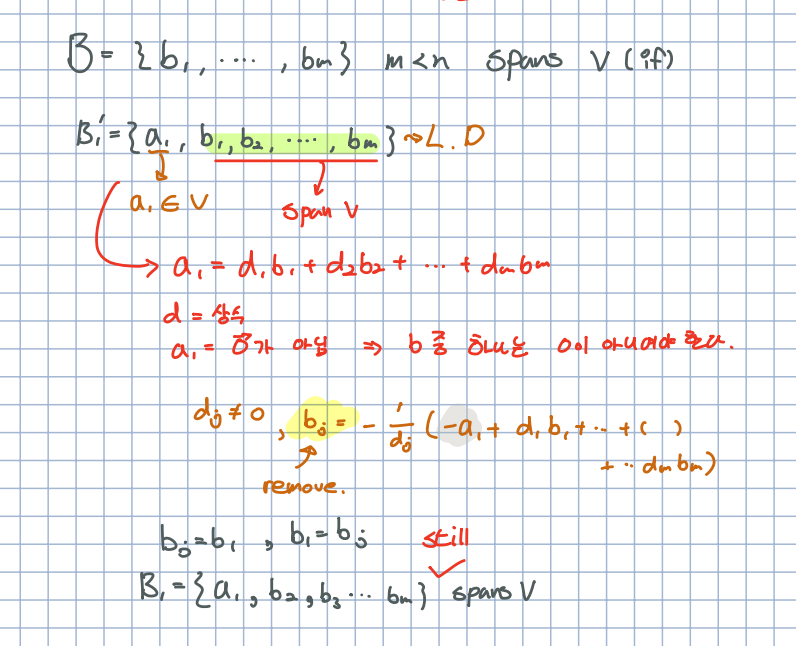 B = {b₁, ····, bm} m<n spans V (if)
B₁' = {a₁, b₁, b₂, ····, bm} → L.D
a₁ ∈ V
span V
a₁ = d₁b₁ + d₂b₂ + ··· + dmbm
d = 상수
a₁ = 0가 아님 ⇒ b 중 하나는 0이 아니어야 한다.
dj ≠ 0, bj = - 1/dj (-a₁ + d₁b₁ + ·· + ( )
+ ·· dmbm)
remove.
bj = b₁, b₁ = bj still
B₁ = {a₁, b₂, b₃ ··· bm} spans V